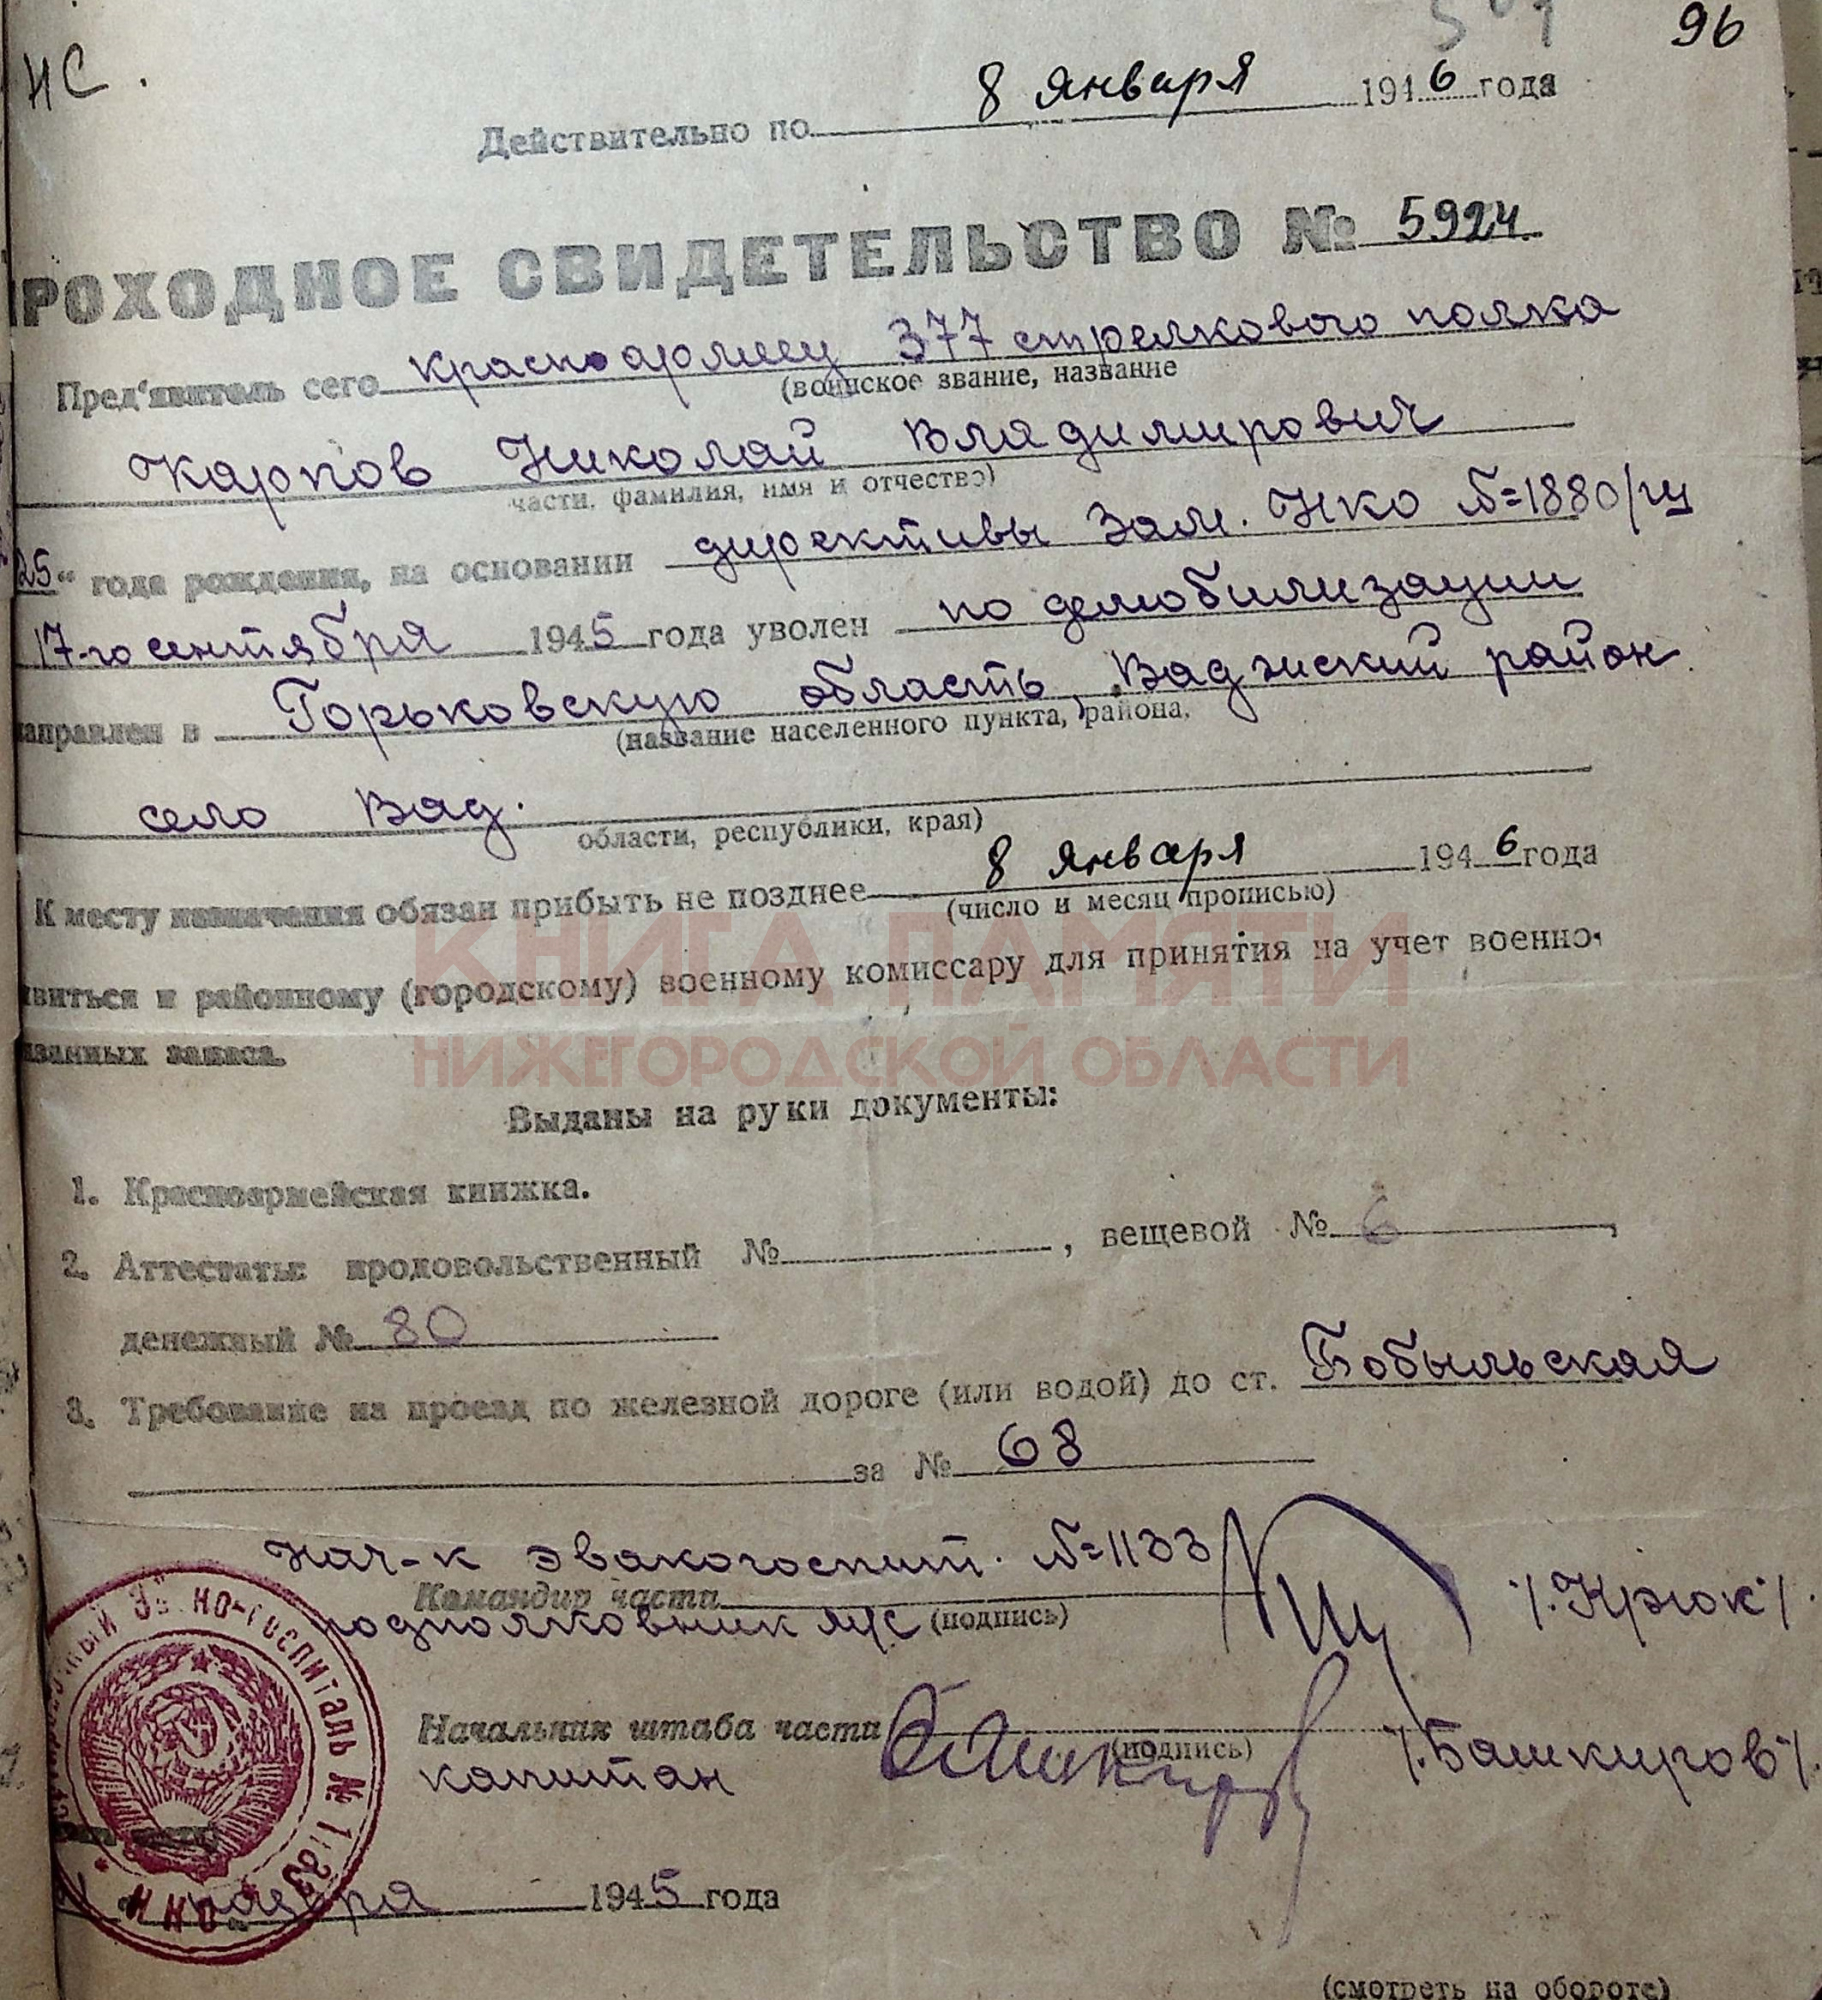 96
НС.
8 января 1946 года
Действительно по
РОХОДНОЕ СВИДЕТЕЛЬСТВО № 5924
Пред'явитель сего красноармеец 377 стрелкового полка
(воинское звание, название
Карпов Николай Владимирович
части, фамилия, имя и отчество)
25" года рождения, на основании директивы Зам. НКО №1880/гш
17-го сентября 1945 года уволен по демобилизации
направлен в Горьковскую область, Ваджский район
(название населенного пункта, района,
село Вад.
области, республики, края)
К месту назначения обязан прибыть не позднее 8 января 1946 года
(число и месяц прописью)
виться к районному (городскому) военному комиссару для принятия на учет военно-
язанных запаса.
КНИГА ПАМЯТИ
НИЖЕГОРОДСКОЙ ОБЛАСТИ
Выданы на руки документы:
1. Красноармейская книжка.
2. Аттестаты: продовольственный № , вещевой № 6,
денежный № 80
3. Требование на проезд по железной дороге (или водой) до ст. Бобыльская
за № 68
Нач-к эвакогоспит. №1133
Командир части (подпись) /.Крюк/.
подполковник м/с
Начальник штаба части (подпись) /.Башкиров/.
капитан
ГОСПИТАЛЬ №
1945 года
(смотреть на обороте)